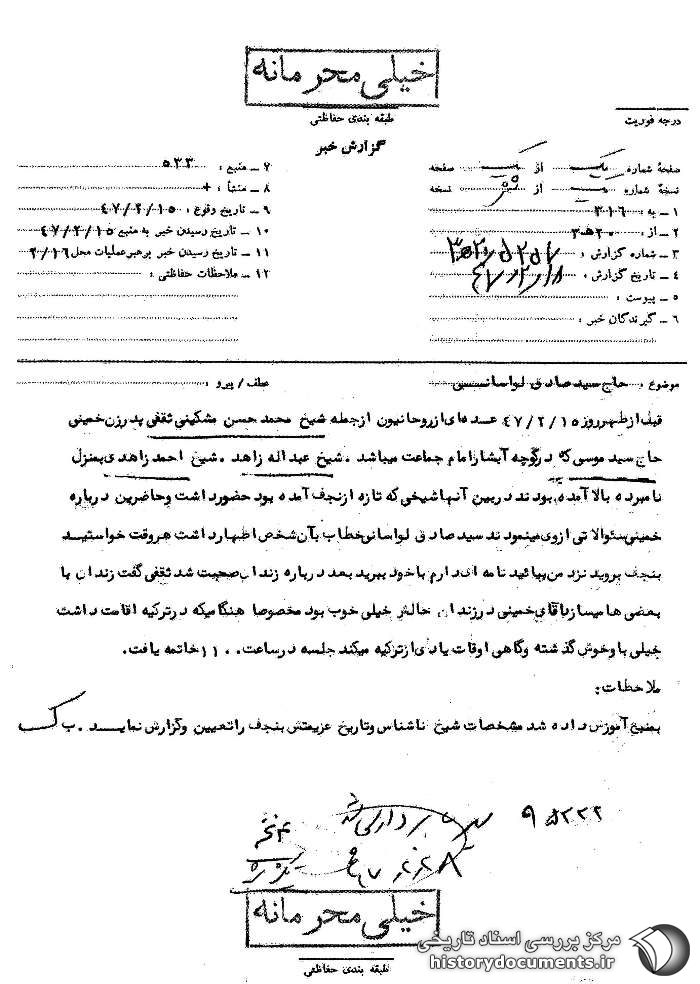 خیلی محرمانه
طبقه بندی حفاظتی
درجه فوریت
گزارش خبر
صفحه شماره یک از یک صفحه
نسخه شماره یک از نسخه
۱ – به : ۳۱۶
۲ – از : ۲۰ھ۳
۳ – شماره گزارش :
۴ – تاریخ گزارش : ۴۷/۲/۱۸
۵ – پیوست :
۶ – گیرندگان خبر :
۷ – منبع : ۵۳۳
۸ – منشأ : +
۹ – تاریخ وقوع : ۴۷/۲/۱۵
۱۰ – تاریخ رسیدن خبر به منبع ۴۷/۲/۱۵
۱۱ – تاریخ رسیدن خبر برهبر عملیات محل ۲/۱۶
۱۲ – ملاحظات حفاظتی :
موضوع : حاج سید صادق لواسانی
عطف / پیرو :
قبل از ظهر روز ۴۷/۲/۱۵ عده ای از روحانیون از جمله شیخ محمد حسن مشکینی ثقفی پدر زن خمینی
حاج سید موسی که در کوچه آبشار امام جماعت میباشد . شیخ عبداله زاهد . شیخ احمد زاهدی بمنزل
نامبرده بالا آمده بودند در بین آنها شیخی که تازه از نجف آمده بود حضور داشت و حاضرین درباره
خمینی سئوالاتی از وی مینمودند سید صادق لواسانی خطاب بآن شخص اظهار داشت هر وقت خواستید
بنجف بروید نزد من بیائید نامه ای دارم با خود ببرید بعد درباره زندان صحبت شد ثقفی گفت زندان با
بعضی ها میسازد آقای خمینی در زندان حالش خیلی خوب بود مخصوصا هنگامیکه در ترکیه اقامت داشت
خیلی باو خوش گذشته و گاهی اوقات یادی از ترکیه میکند جلسه در ساعت ۱۱۰۰ خاتمه یافت.
ملاحظات:
بمنبع آموزش داده شد مشخصات شیخ ناشناس و تاریخ عزیمتش بنجف را تعیین و گزارش نماید . ب ک
۹۵۲۲۲
خیلی محرمانه
طبقه بندی حفاظتی
مرکز بررسی اسناد تاریخی
historydocuments.ir